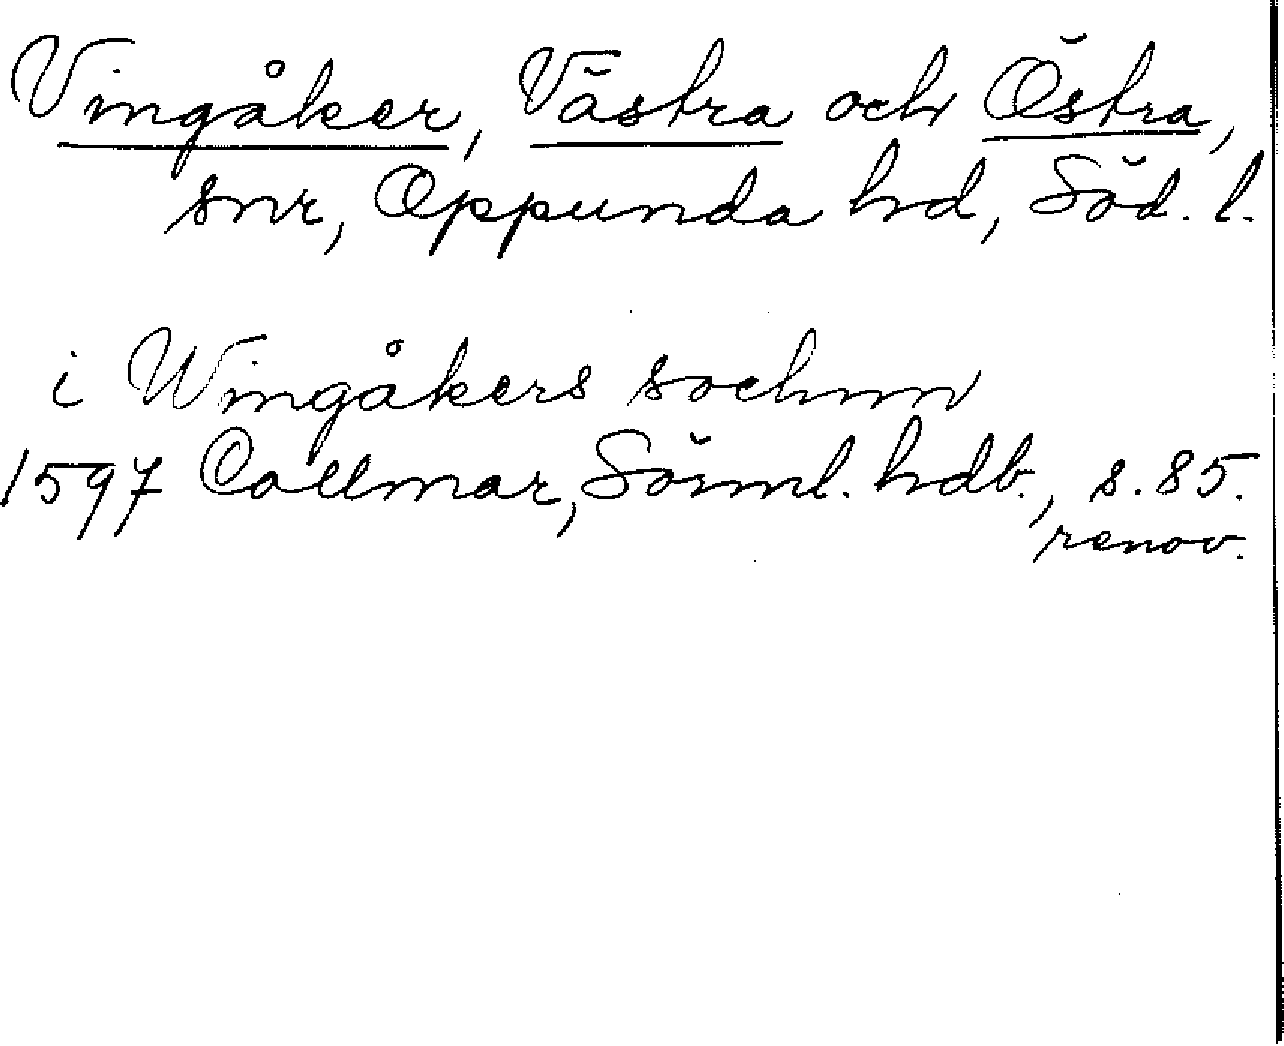 Vingåker, Västra och Östra,
snr, Oppunda hd, Söd. l.
i Wingåkers sochnn
1597 Collmar, Sörml. hdb., s. 85.
renov.